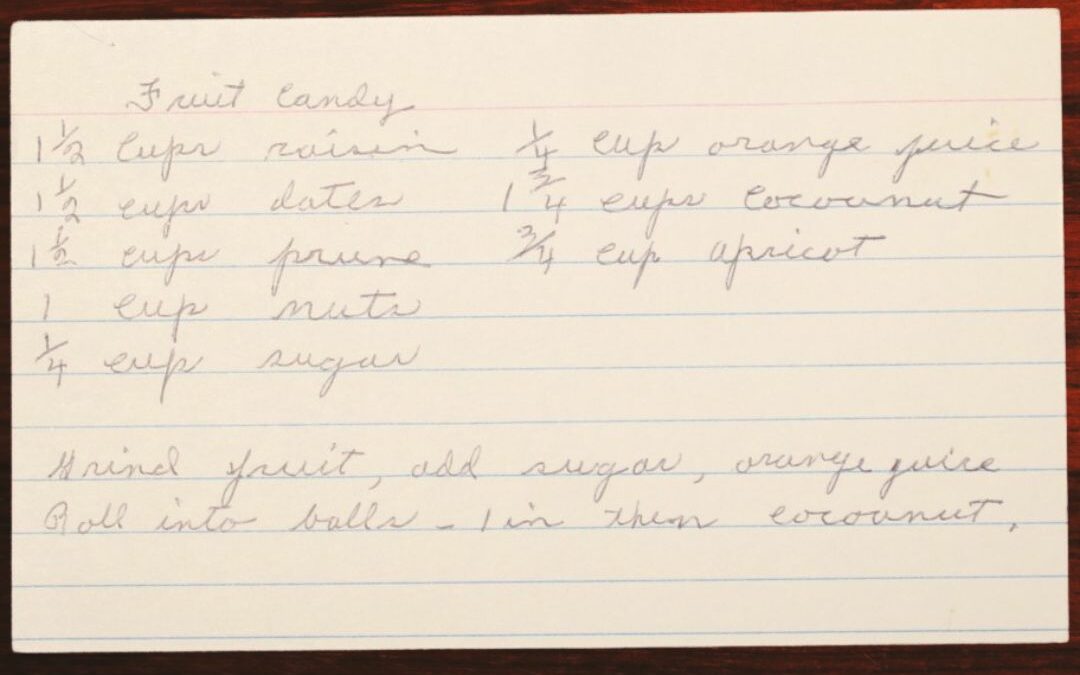 Fruit Candy
1 1/2 cups raisin 1/4 cup orange juice
1 1/2 cups dates 1 3/4 cups cocoanut
1 1/2 cups prune 3/4 cup apricot
1 cup nuts
1/4 cup sugar
Grind fruit, add sugar, orange juice
Roll into balls - 1 in then cocoanut.